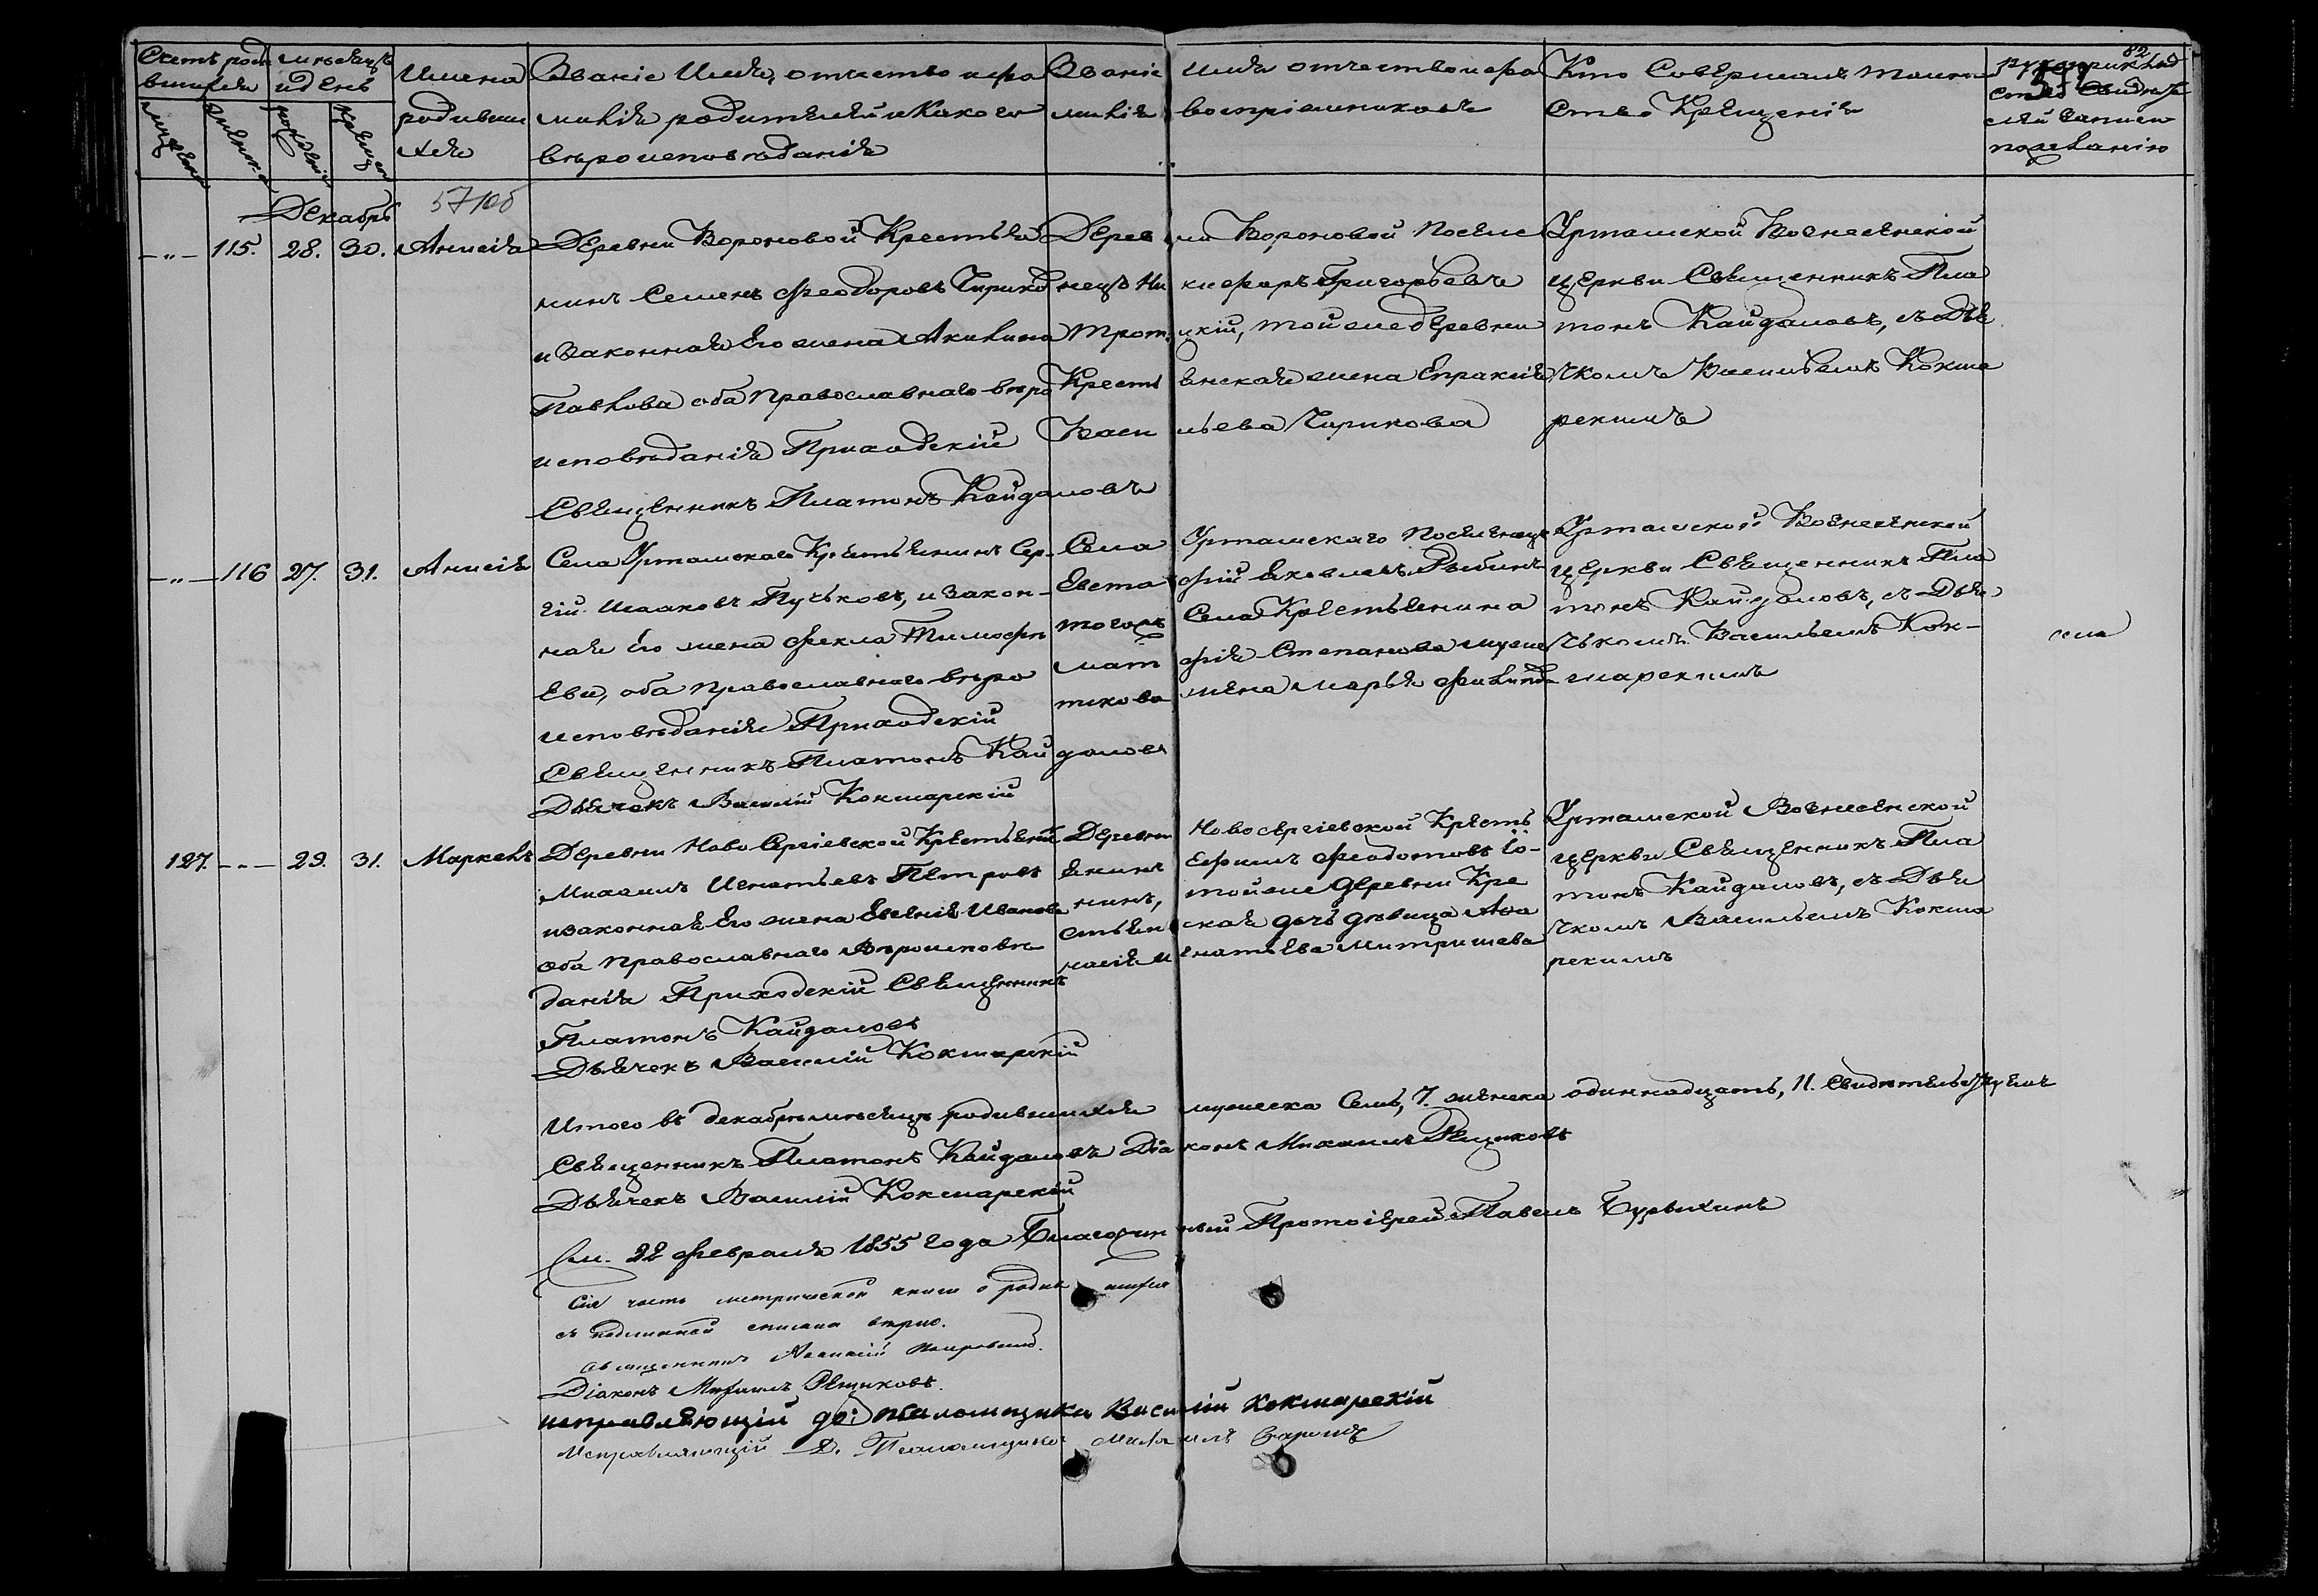 82
Счетъ роди
вшихся
мѣсяцъ
и день
мужеска
женска
рожденія
крещенія
Имена
родивши
хся
Званіе Имя, отчество и фа
милія родителей и Какого
вѣроисповѣданія
Званіе имя отчество и фа
милія воспріемниковъ
Кто Совершалъ таин
ство Крещенія
Рукоприклад
ство Свидѣте
лей записи
по желанію
Декабрь 57 об
-"- 115. 28. 30. Анисія
Деревни Вороновой Крестья
нинъ Семенъ Феодоровъ Чирико
и Законная Его жена Акилина
Павлова оба Православнаго вѣро
исповѣданія Приходскій
Священникъ Платонъ Кайдаловъ
Деревни Вороновой Поселе
нецъ Никифоръ Григорьевъ
Троицкій, той же деревни
Крестьянская жена Епраксія
Васильева Чирикова
Урташской Вознесенской
церкви Священникъ Пла
тонъ Кайдаловъ, съ Дья
чкомъ Васильемъ Кокша
рскимъ
-"- 116 27. 31. Анисія
Села Урташскаго Крестьянинъ Сер-
гій Исааковъ Пучковъ, и Закон-
ная Его жена Фекла Тимофѣ
ева, оба Православнаго вѣро
исповѣданія Приходскій
Священникъ Платонъ Кайдаловъ
Дьячекъ Василій Кокшарскій
Села Урташскаго Поселенецъ
Евстафій Яковлевъ Рыбинъ
тогожъ Села Крестьянина
жена Марья Филип
Урташской Вознесенской
церкви Священникъ Пла
тонъ Кайдаловъ, съ Дья
чкомъ Васильемъ Кок-
шарскимъ
127. - - - 29. 31. Маркелъ
Деревни Ново Сергіевской Крестьянинъ
Михаилъ Игнатьевъ Петровъ
и законная Его жена Евгенія Иванова
оба Православнаго Вѣроисповѣ
данія Приходскій Священникъ
Платонъ Кайдаловъ
Дьячекъ Василій Кокшарскій
Деревни Новосергіевской Кресть
янинъ Ефимъ Феодотовъ
той же деревни Кре
стьянская дочь дѣвица Аѳа
насія Игнатьева Митришева
Урташской Вознесенской
церкви Священникъ Пла
тонъ Кайдаловъ, съ Дья
чкомъ Васильемъ Кокша
рскимъ
Итого въ декабрѣ мѣсяцѣ родившихся мужеска Семь, 7. женска одиннадцать, 11. Свидѣтельствуемъ
Священникъ Платонъ Кайдаловъ Діаконъ Михаилъ Рещиковъ
Дьячекъ Василій Кокшарскій
См. 22 февраля 1855 года Благочинный Протоіерей Павелъ Бурыхинъ
Сія часть метрической книги о родившихся
съ подлинной списана вѣрно.
Священникъ
Діаконъ Михаилъ Рещиковъ.
исправляющій до: пталомщика Василій Кокшарскій
Исправляющій Д. Пталомщика Михаилъ